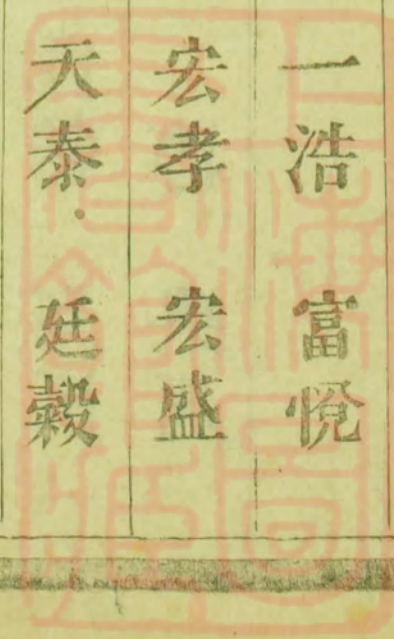 一浩 富悅
宏孝 宏盛
天泰 廷榖